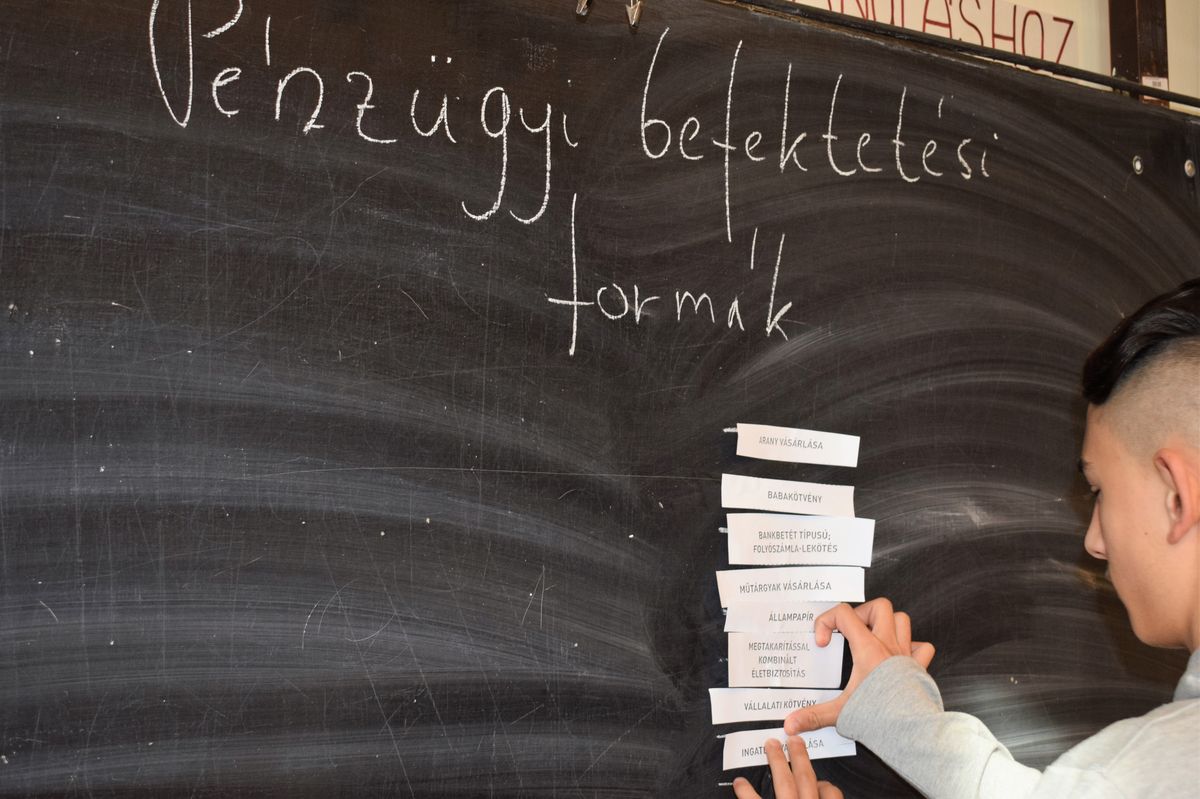 TANULÁSHOZ
Pénzügyi befektetési
formák
ARANY VÁSÁRLÁSA
BABAKÖTVÉNY
BANKBETÉT TÍPUSÚ;
FOLYÓSZÁMLA-LEKÖTÉS
MŰTÁRGYAK VÁSÁRLÁSA
ÁLLAMPAPÍR
MEGTAKARÍTÁSSAL
KOMBINÁLT
ÉLETBIZTOSÍTÁS
VÁLLALATI KÖTVÉNY